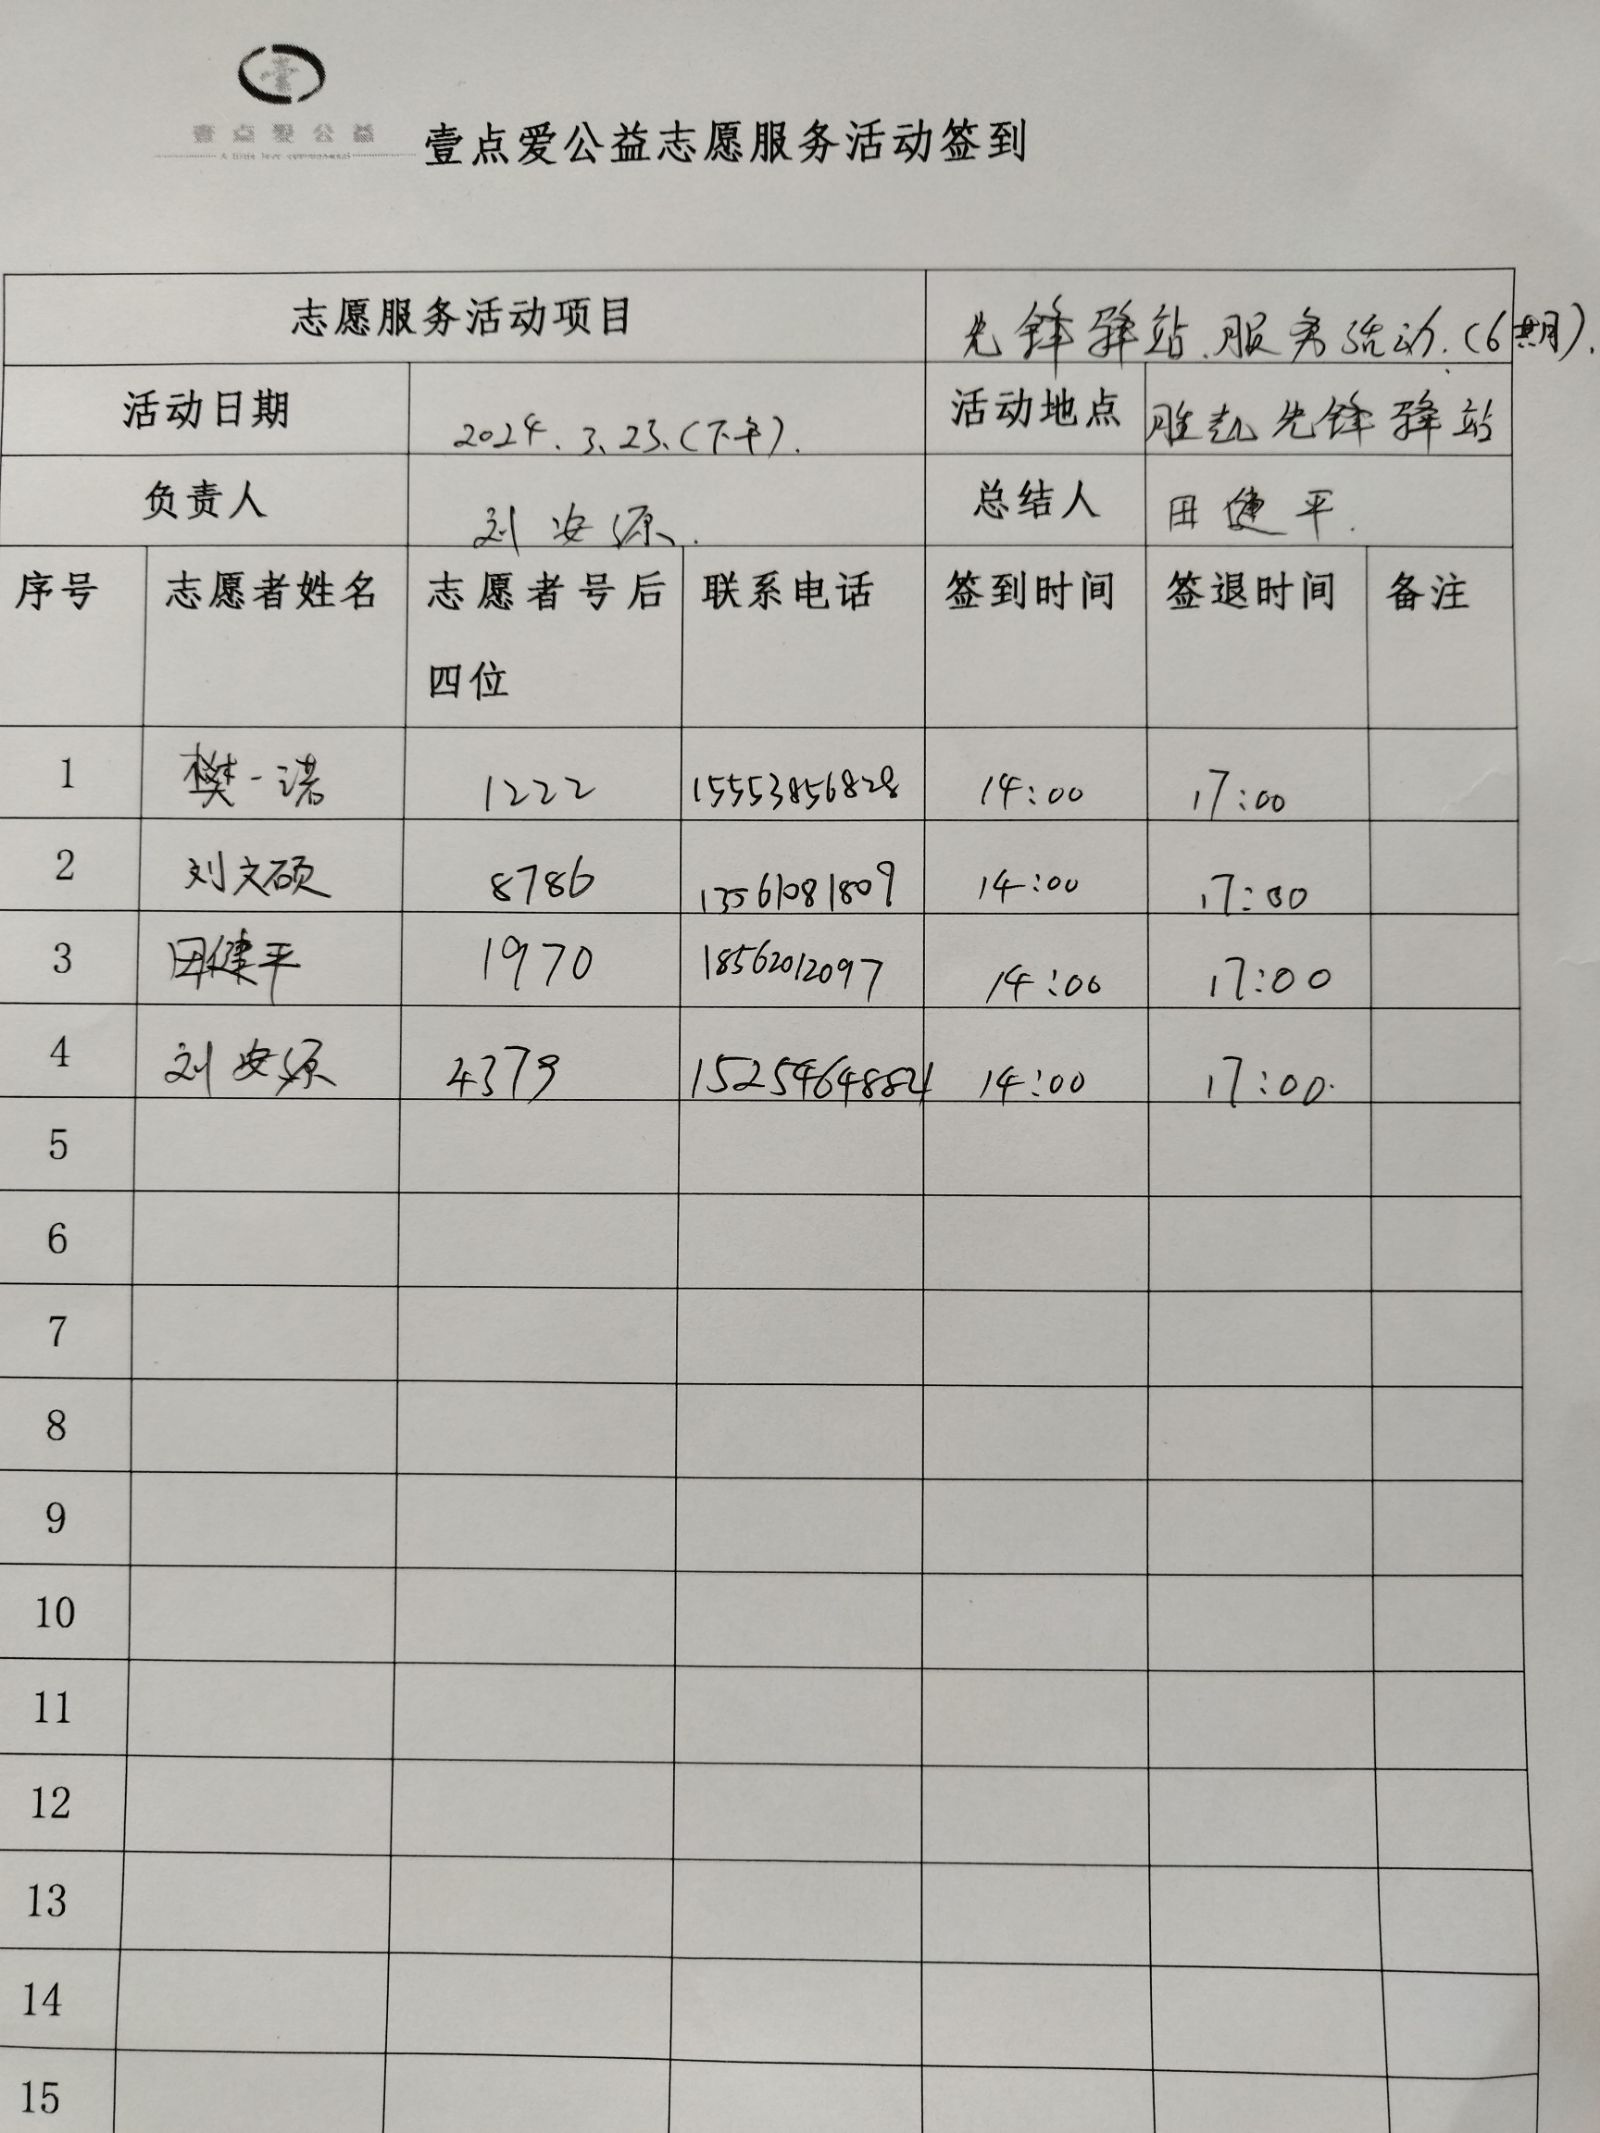 壹点爱公益
A little love commonweal
壹点爱公益志愿服务活动签到
志愿服务活动项目 先锋驿站.服务活动.(6期).
活动日期 2024.3.23.(下午). 活动地点 胜凯先锋驿站
负责人 刘安源. 总结人 田健平.
序号 志愿者姓名 志愿者号后 联系电话 签到时间 签退时间 备注
四位
1 樊一诺 1222 15553856828 14:00 17:00
2 刘文硕 8786 13561081809 14:00 17:00
3 田健平 1970 18562012097 14:00 17:00
4 刘安源 4379 15254648841 14:00 17:00.
5
6
7
8
9
10
11
12
13
14
15